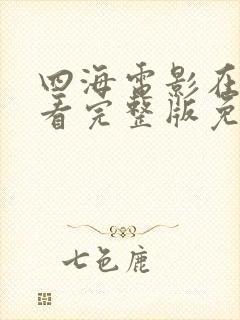 四海电影在
看完整版免
七色鹿